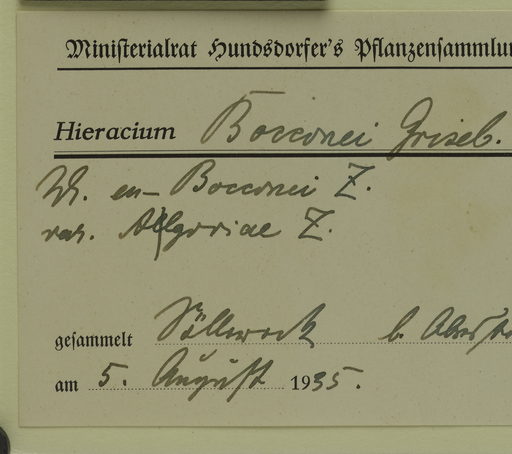 Ministerialrat Hundsdorfer's Pflanzensammlun
Hieracium Bocconei Griseb.
en- Bocconei Z.
var. Algoviae Z.
gesammelt Söllereck b. Oberst
am 5. August 1935.